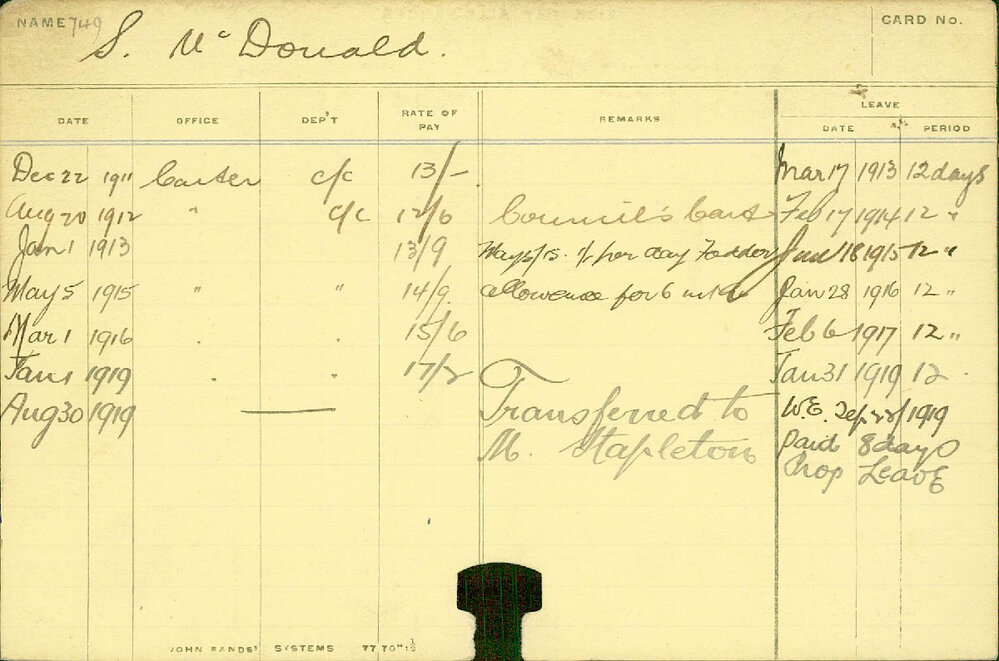 NAME 749 S. McDonald. CARD No.
DATE OFFICE DEP'T RATE OF PAY REMARKS LEAVE DATE PERIOD
Dec 22 1911 Carter c/c 13/- Mar 17 1913 12 days
Aug 20 1912 " c/c 12/6 Council's Cart Feb 17 1914 12 "
Jan 1 1913 13/9 May 5/15. 1/- per day Fodder Jan 18 1915 12 "
May 5 1915 " " 14/9 allowance for 6 mths Jan 28 1916 12 "
Mar 1 1916 . . 15/6 Feb 6 1917 12 "
Jan 1 1919 . " 17/2 Jan 31 1919 12 .
Aug 30 1919 — Transferred to W.E. Sep. 1919
M. Stapleton Paid 8 days
Prop Leave
JOHN SANDS' SYSTEMS